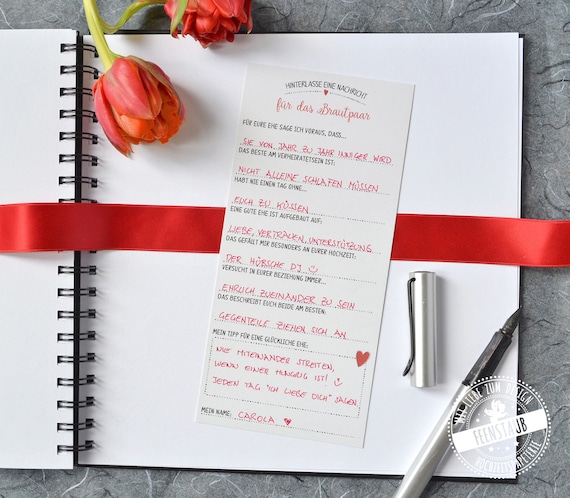 HINTERLASSE EINE NACHRICHT
für das Brautpaar
FÜR EURE EHE SAGE ICH VORAUS, DASS...
SIE VON JAHR ZU JAHR INNIGER WIRD
DAS BESTE AM VERHEIRATETSEIN IST:
NICHT ALLEINE SCHLAFEN MÜSSEN
HABT NIE EINEN TAG OHNE...
EUCH ZU KÜSSEN
EINE GUTE EHE IST AUFGEBAUT AUF:
LIEBE, VERTRAUEN, UNTERSTÜTZUNG
DAS GEFÄLLT MIR BESONDERS AN EURER HOCHZEIT:
DER HÜBSCHE DJ
VERSUCHT IN EURER BEZIEHUNG IMMER...
EHRLICH ZUEINANDER ZU SEIN
DAS BESCHREIBT EUCH BEIDE AM BESTEN:
GEGENTEILE ZIEHEN SICH AN
MEIN TIPP FÜR EINE GLÜCKLICHE EHE:
NIE MITEINANDER STREITEN,
WENN EINER HUNGRIG IST!
JEDEN TAG "ICH LIEBE DICH" SAGEN
MEIN NAME: CAROLA
MIT LIEBE ZUM DESIGN
FEENSTAUB
HOCHZEITSPAPETERIE